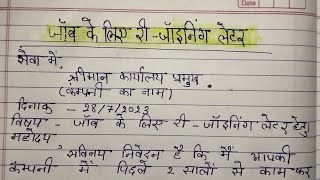 जॉब के लिए री-जॉइनिंग लेटर
सेवा में,
श्रीमान कार्यालय प्रमुख
(कम्पनी का नाम)
दिनाक - 28/7/2023
विषय - जॉब के लिए री-जॉइनिंग लेटर हेतु।
महोदय,
सविनय निवेदन है कि मैं आपकी
कम्पनी में पिछले 2 सालों से काम कर